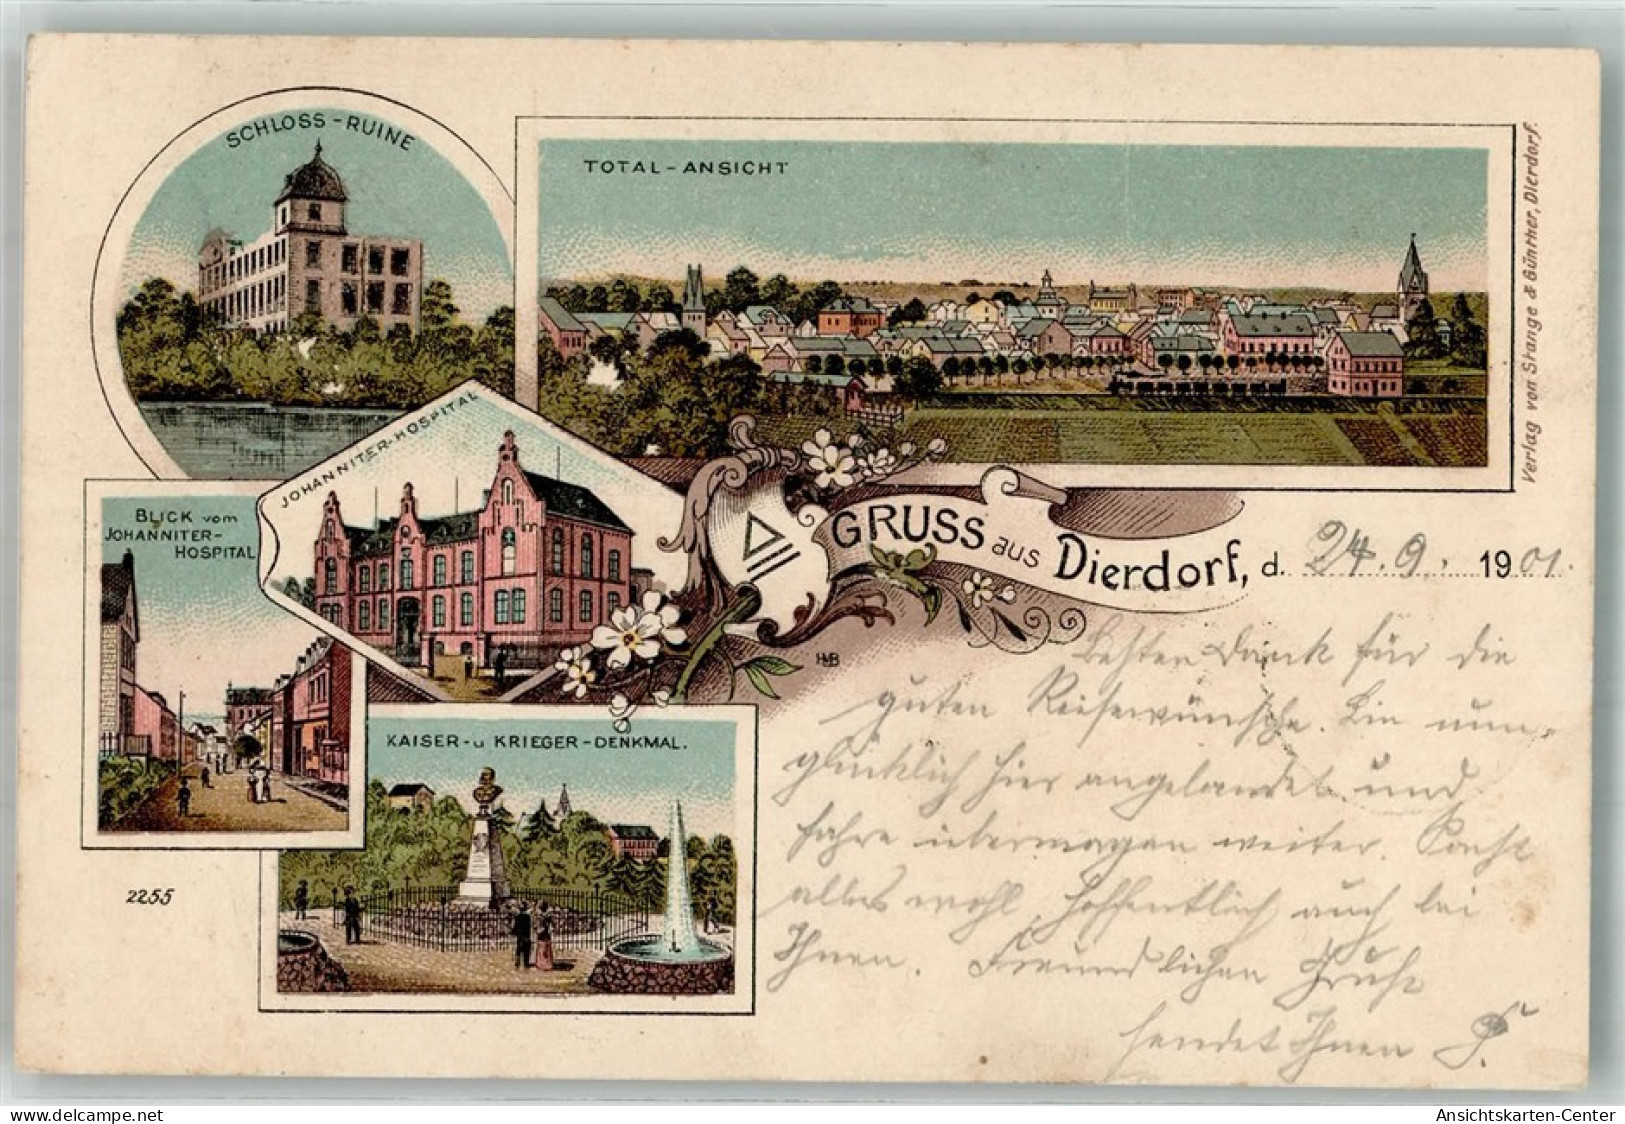 SCHLOSS-RUINE
TOTAL-ANSICHT
Verlag von Stange & Günther, Dierdorf.
JOHANNITER-HOSPITAL
BLICK vom
JOHANNITER-
HOSPITAL
GRUSS aus Dierdorf, d. 24. 9. 1901.
HMB
KAISER- u KRIEGER-DENKMAL.
2255
Besten Dank für die
guten Reisewünsche. Bin nun
glücklich hier angelandet und
fahre übermorgen weiter.
alles wohl, hoffentlich auch bei
Ihnen. Freundlichen Gruß
sendet Ihnen
www.delcampe.net
Ansichtskarten-Center